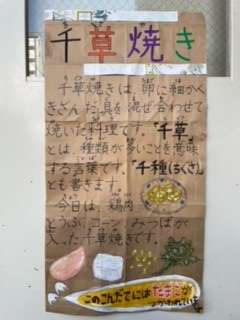 千草焼き
千草焼きは、卵に細かく
きざんだ具を混ぜ合わせて
焼いた料理です。"千草"
とは、種類が多いことを意味
する言葉です。"千種(ちぐさ)"
とも書きます。
今日は、鶏肉
とうふ、コーン、みつばが
入った千草焼きです。
このこんだてには たまごが
つかわれています